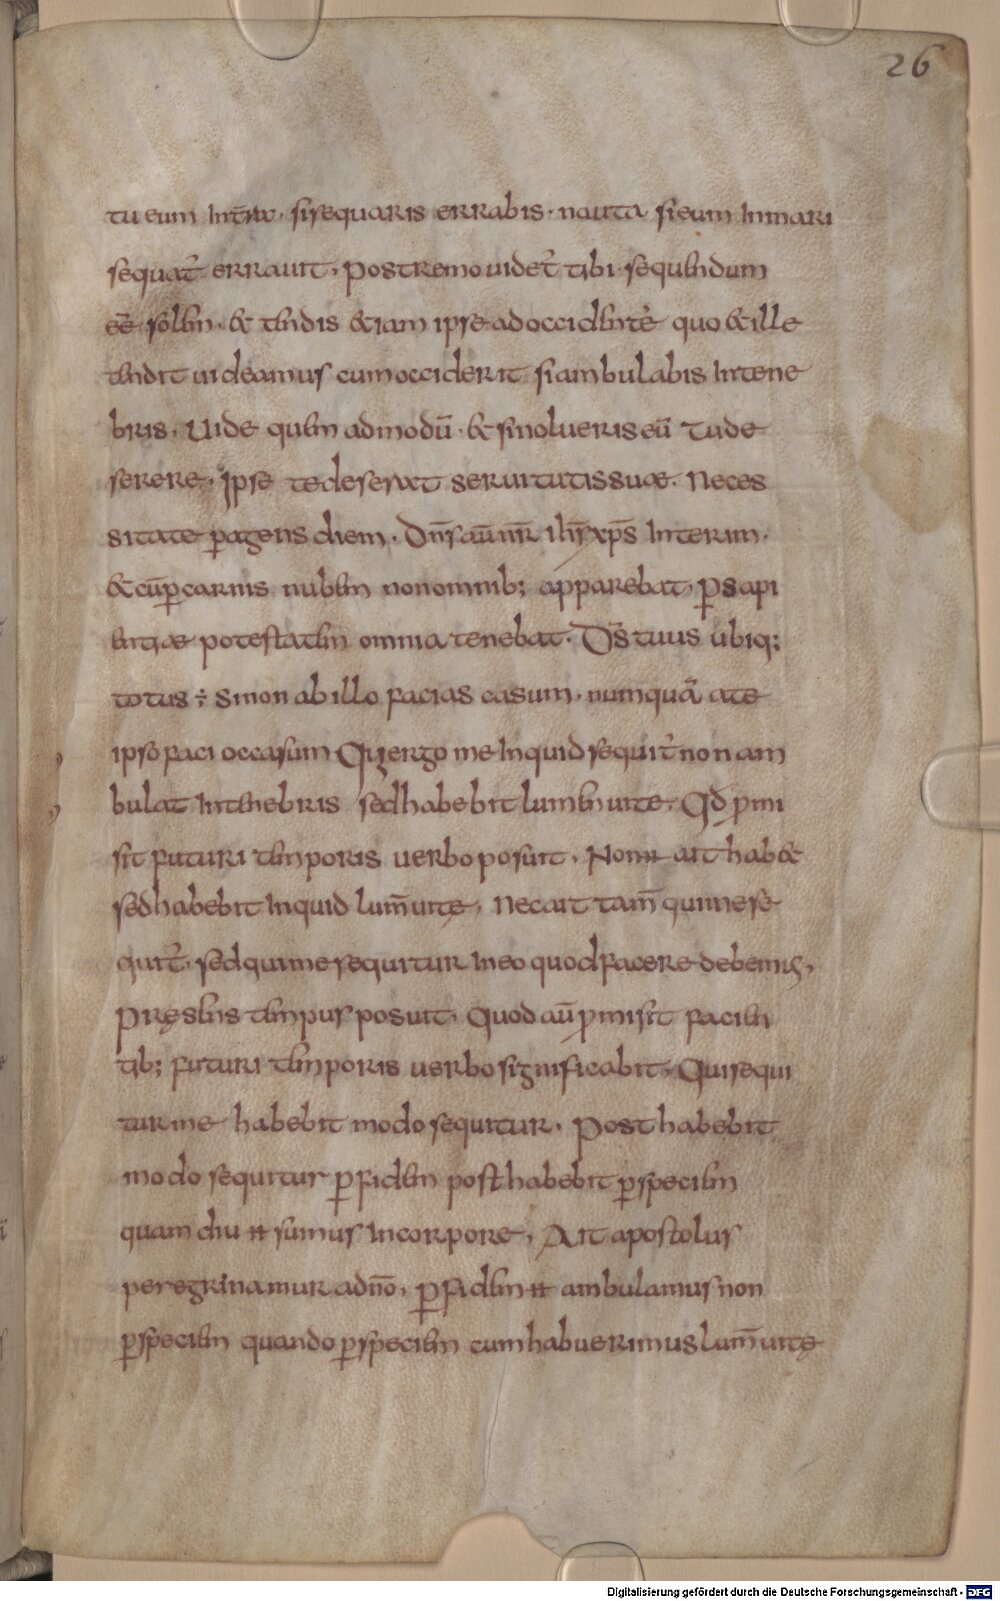 26
tu eum in tr̄a · si sequaris errabis · nauta si eum in mari
sequat᷑ errauit · postremo uidet᷑ tibi sequendum
eē solem · & tendis &iam ipse ad occidentē quo & ille
tendit uideamus cum occiderit si ambulabis in tene
bris · Uide quem admodū · & si nolueris eū tu de
serere · ipse te deserx&t seruitutis suae · Neces
sitate ꝑagens diem · Dn̄s aū nr̄ ih̄s xp̄s Interim ·
& cū ꝑ carnis nubem non omnib; apparebat · ꝑ sapi
entiae potestatem omnia tenebat · Ds̄ tuus ubiq;
totus ÷ si non ab illo facias casum · numquā a te
ipso faci occasum Qui ergo me inquid sequit᷑ non am
bulat in tenebris sed habebit lumen uite · Qd̄ ꝓmi
sit futuri temporis uerbo posuit · Non ait hab&
sed habebit inquid lum̄ uitę · Nec ait tam̄ qui me se
quit᷑ · sed qui me sequitur in eo quod facere debemus ·
pręsens tempus posuit · Quod aū ꝓmisit facien
tib; futuri temporis uerbo significabit · Qui sequi
tur me habebit modo sequitur · post habebit
modo sequitur ꝑ fidem post habebit ꝑ speciem
quam diu ħ sumus in corpore · Ait apostolus
peregrinamur a dn̄o · ꝑ fidem ħ ambulamus non
ꝑ speciem quando ꝑ speciem cum habuerimus lum̄ uitę
Digitalisierung gefördert durch die Deutsche Forschungsgemeinschaft - DFG